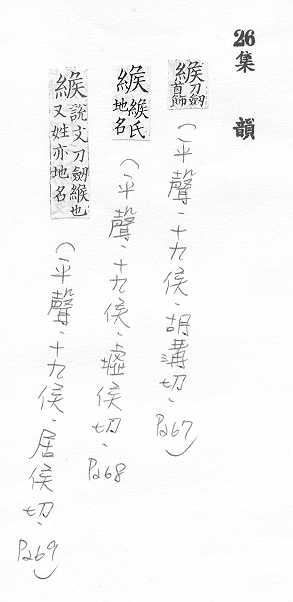 26集 韻
緱刀劒首飾
(平聲、十九侯、胡溝切、P267)
緱緱氏地名
(平聲、十九侯、墟侯切、P268
緱說文刀劒緱也又姓亦地名
(平聲、十九侯、居侯切、P269)